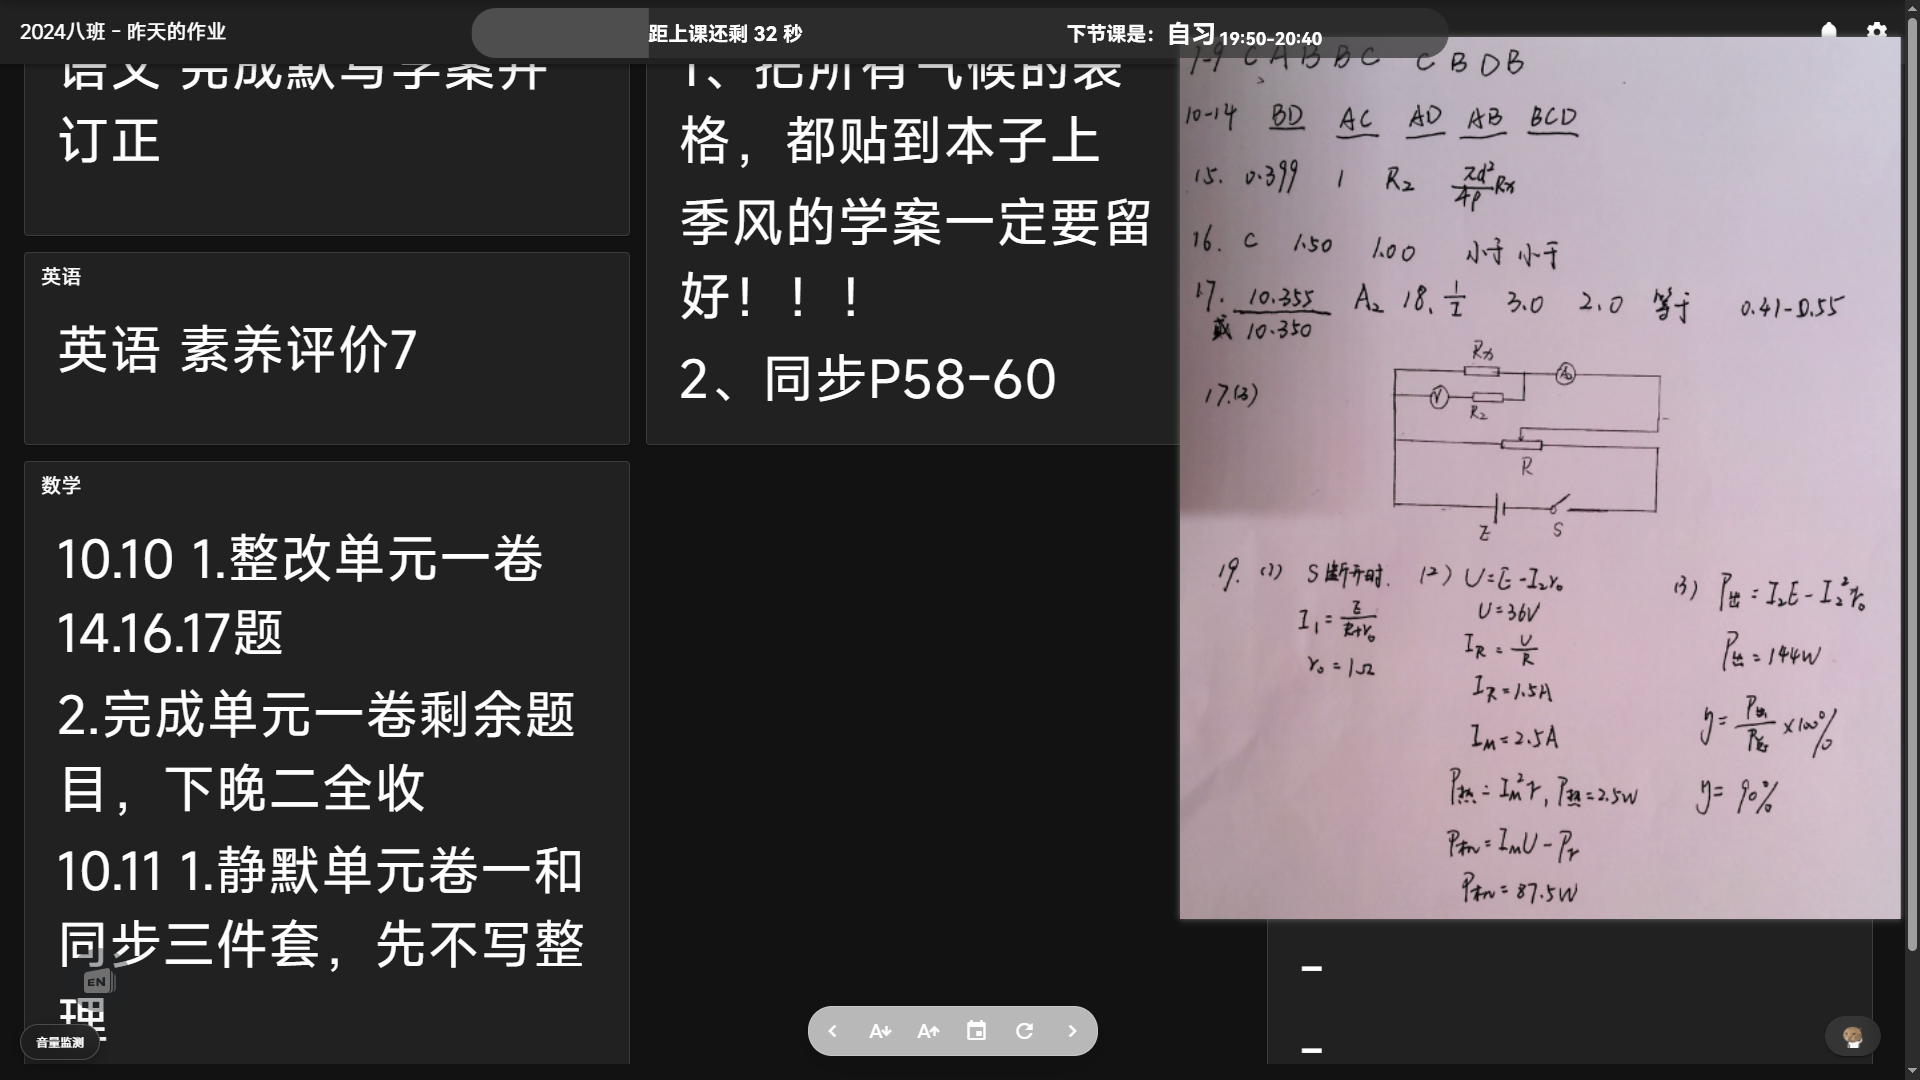 2024八班 - 昨天的作业
距上课还剩 32 秒
下节课是：自习 19:50-20:40
语文 完成默写学案并
订正
英语
英语 素养评价7
数学
10.10 1.整改单元一卷
14.16.17题
2.完成单元一卷剩余题
目，下晚二全收
10.11 1.静默单元卷一和
同步三件套，先不写整
理
EN
音量监测
1、把所有气候的表
格，都贴到本子上
季风的学案一定要留
好！！！
2、同步P58-60
1-9 C A B B C C B D B
10-14 BD AC AD AB BCD
15. 0.399 1 R₂ πd²/4ρ Rx
16. C 1.50 1.00 小于 小于
17. 10.355 A₂ 18. 1/I 3.0 2.0 等于 0.41-0.55
或 10.350
17.(3)
Rx
A₀
V
R₂
R
E
S
19. (1) S断开时.
I₁ = E/(R+r₀)
r₀ = 1Ω
(2) U=E-I₂r₀
U=36V
I_R = U/R
I_R = 1.5A
I_M = 2.5A
P热 = I_M²r, P热 = 2.5W
P机 = I_M U - P_r
P机 = 87.5W
(3) P出 = I₂E - I₂²r₀
P出 = 144W
η = P出/P总 ×100%
η = 90%
-
-
A
A